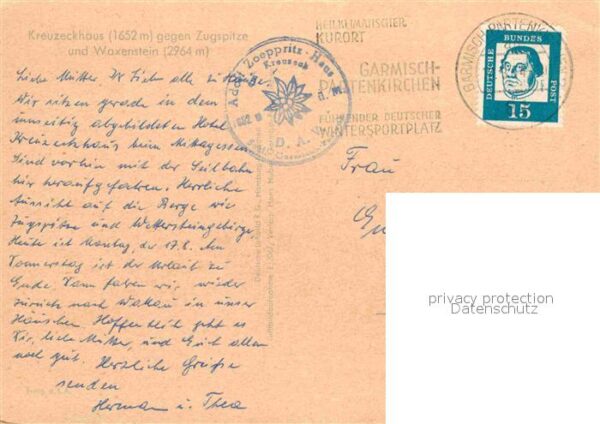 Kreuzeckhaus (1652 m) gegen Zugspitze
und Waxenstein (2964 m)
Liebe Mutter Ihr Lieben alle zu Hause.
Wir sitzen grade in dem
umseitig abgebildeten Hotel
Kreuzeckhaus beim Mittagessen.
Sind vorhin mit der Seilbahn
hier heraufgefahren. Herrliche
Aussicht auf die Berge wie
Zugspitze und Wettersteingebirge.
Heute ist Montag, der 17.8. Am
Donnerstag ist der Urlaub zu
Ende. Dann fahren wir wieder
zurück nach in unser
Häuschen. Hoffentlich geht es
Dir, liebe Mutter, und Euch allen
noch gut. Herzliche Grüße
senden
Herman u. Thea
Adolf Zoeppritz-Haus
Kreuzeck
1652 m
D. A.
HEILKLIMATISCHER
KURORT
GARMISCH-
PARTENKIRCHEN
FÜHRENDER DEUTSCHER
WINTERSPORTPLATZ
GARMISCH-PARTENKIRCHEN
DEUTSCHE BUNDES POST
15
Frau
privacy protection
Datenschutz